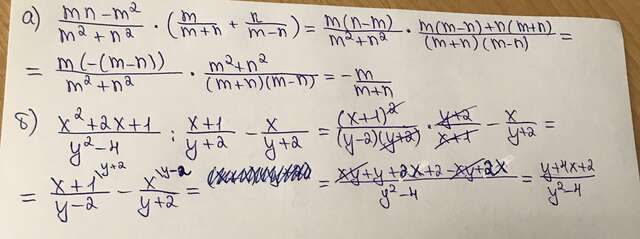 а) (mn-m²)/(m²+n²) · (m/(m+n) + n/(m-n)) = m(n-m)/(m²+n²) · (m(m-n)+n(m+n))/((m+n)(m-n)) =
= m(-(m-n))/(m²+n²) · (m²+n²)/((m+n)(m-n)) = -m/(m+n)
б) (x²+2x+1)/(y²-4) : (x+1)/(y+2) - x/(y+2) = (x+1)²/((y-2)(y+2)) · (y+2)/(x+1) - x/(y+2) =
= (x+1)^(y+2)/(y-2) - x^(y-2)/(y+2) = = (xy+y+2x+2-xy+2x)/(y²-4) = (y+4x+2)/(y²-4)